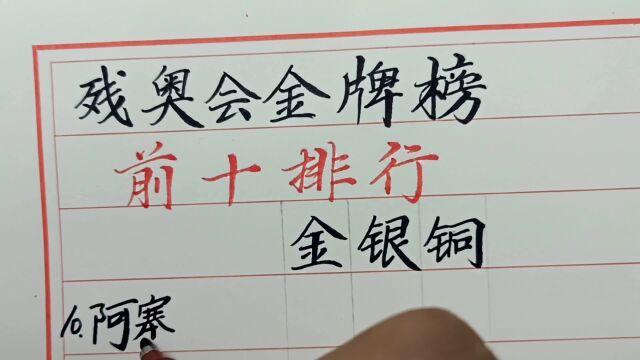 残奥会金牌榜
前十排行
金银铜
10.阿塞